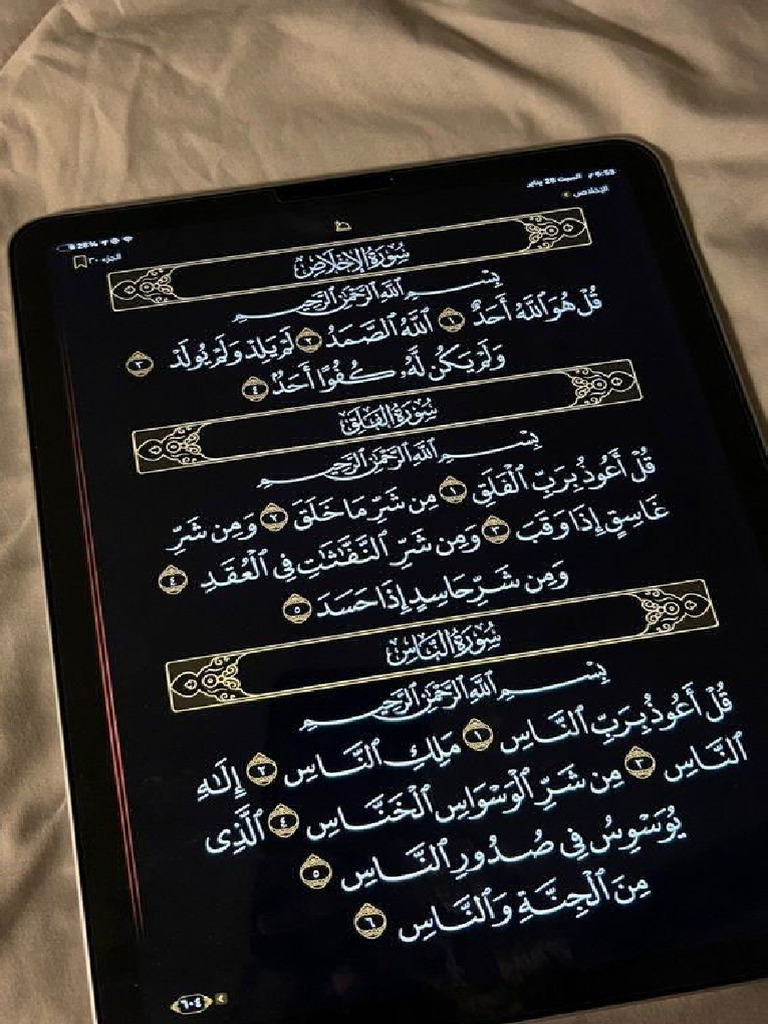 ٩:٥٣ السبت 28 يناير
28%
الإخلاص
الجزء ٣٠
سُورَةُ الإِخْلَاصِ
بِسْمِ ٱللَّهِ ٱلرَّحْمَٰنِ ٱلرَّحِيمِ
قُلْ هُوَ ٱللَّهُ أَحَدٌ ١ ٱللَّهُ ٱلصَّمَدُ ٢ لَمْ يَلِدْ وَلَمْ يُولَدْ ٣
وَلَمْ يَكُن لَّهُۥ كُفُوًا أَحَدٌۢ ٤
سُورَةُ الفَلَقِ
بِسْمِ ٱللَّهِ ٱلرَّحْمَٰنِ ٱلرَّحِيمِ
قُلْ أَعُوذُ بِرَبِّ ٱلْفَلَقِ ١ مِن شَرِّ مَا خَلَقَ ٢ وَمِن شَرِّ
غَاسِقٍ إِذَا وَقَبَ ٣ وَمِن شَرِّ ٱلنَّفَّٰثَٰتِ فِى ٱلْعُقَدِ ٤
وَمِن شَرِّ حَاسِدٍ إِذَا حَسَدَ ٥
سُورَةُ النَّاسِ
بِسْمِ ٱللَّهِ ٱلرَّحْمَٰنِ ٱلرَّحِيمِ
قُلْ أَعُوذُ بِرَبِّ ٱلنَّاسِ ١ مَلِكِ ٱلنَّاسِ ٢ إِلَٰهِ
ٱلنَّاسِ ٣ مِن شَرِّ ٱلْوَسْوَاسِ ٱلْخَنَّاسِ ٤ ٱلَّذِى
يُوَسْوِسُ فِى صُدُورِ ٱلنَّاسِ ٥
مِنَ ٱلْجِنَّةِ وَٱلنَّاسِ ٦
٦٠٤